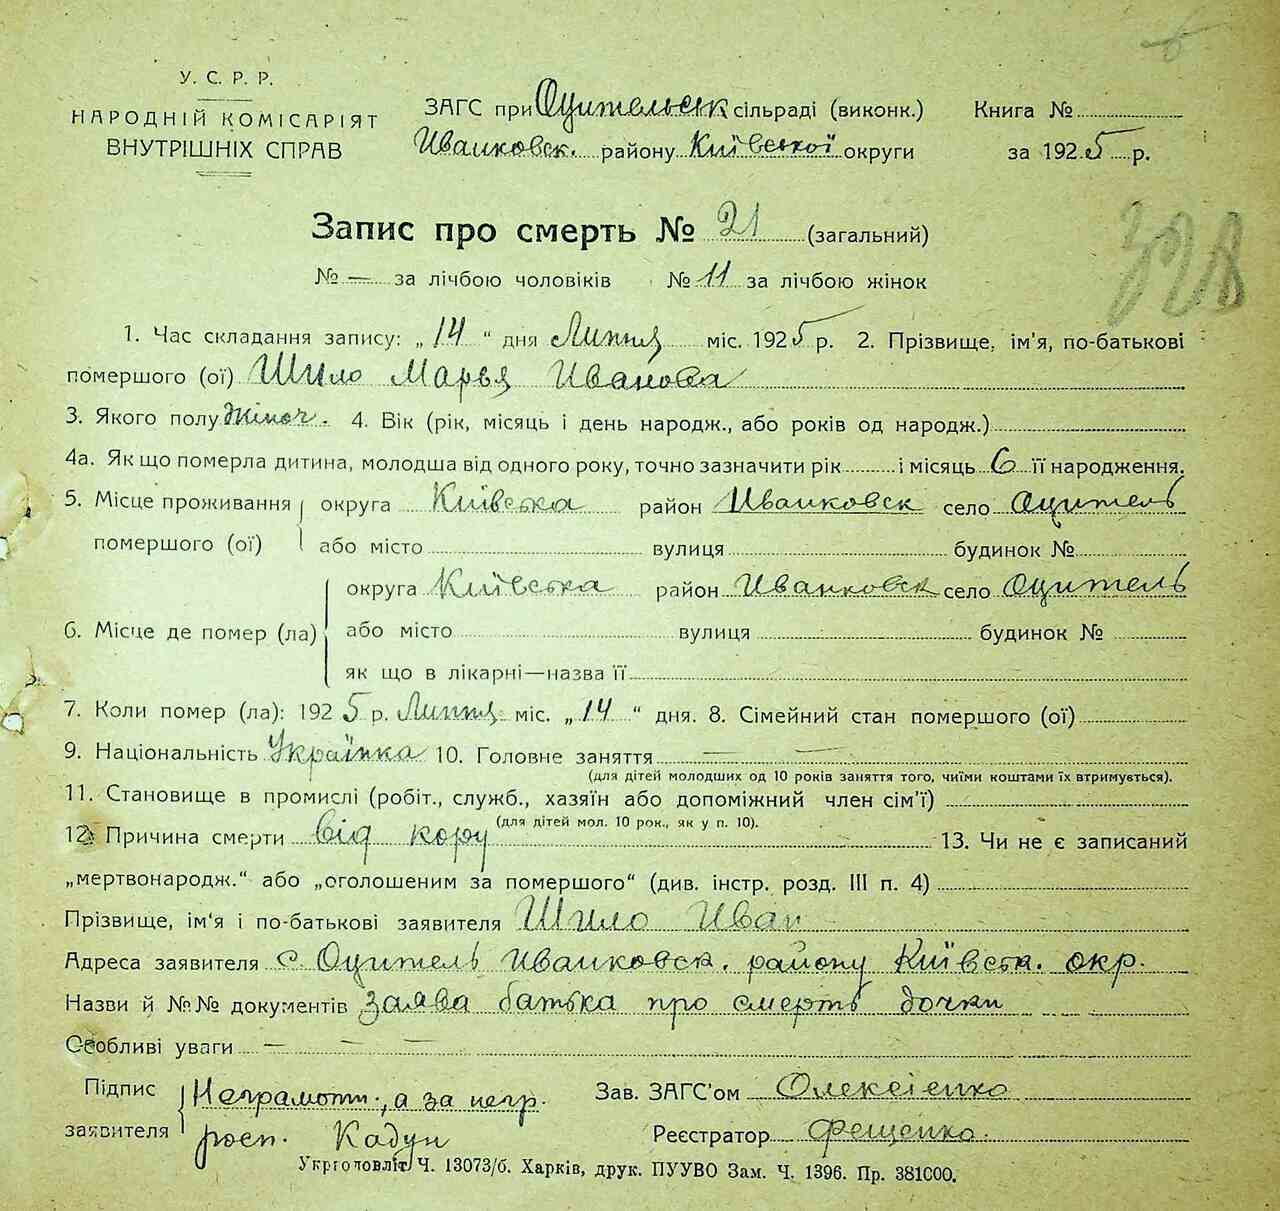 У. С. Р. Р.
НАРОДНІЙ КОМІСАРІЯТ
ВНУТРІШНІХ СПРАВ
ЗАГС при Оцительськ сільраді (виконк.)
Иванковск. району Київської округи
Книга №
за 1925 р.
Запис про смерть № 21 (загальний)
328
№ — за лічбою чоловіків № 11 за лічбою жінок
1. Час складання запису: „14“ дня Липня міс. 1925 р. 2. Прізвище, ім'я, по-батькові
помершого (ої) Шило Марья Иванова
3. Якого полу Жіноч. 4. Вік (рік, місяць і день народж., або років од народж.)
4а. Як що померла дитина, молодша від одного року, точно зазначити рік і місяць 6 її народження.
5. Місце проживання округа Київська район Иванковск село Оцитель
помершого (ої) або місто вулиця будинок №
округа Київська район Иванковск село Оцитель
6. Місце де помер (ла) або місто вулиця будинок №
як що в лікарні—назва її
7. Коли помер (ла): 1925 р. Липня міс. „14“ дня. 8. Сімейний стан помершого (ої)
9. Національність Українка 10. Головне заняття — —
(для дітей молодших од 10 років заняття того, чиїми коштами їх втримується).
11. Становище в промислі (робіт., служб., хазяїн або допоміжний член сім'ї)
(для дітей мол. 10 рок., як у п. 10).
12. Причина смерти від кору 13. Чи не є записаний
„мертвонародж.“ або „оголошеним за помершого“ (див. інстр. розд. III п. 4)
Прізвище, ім'я і по-батькові заявителя Шило Иван
Адреса заявителя с. Оцитель Иванковск. району Київськ. окр.
Назви й №№ документів заява батька про смерть дочки
Особливі уваги — — —
Підпис заявителя Неграмотн., а за негр.
росп. Кадун
Зав. ЗАГС'ом Олексієнко
Реєстратор Фещенко.
Укрголовліт Ч. 13073/б. Харків, друк. ПУУВО Зам. Ч. 1396. Пр. 381000.